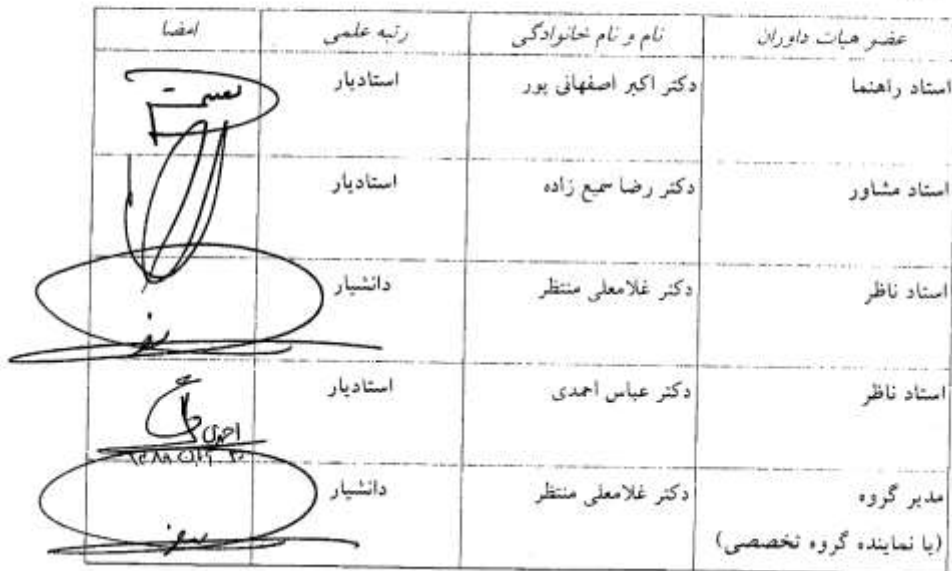 عضو هیات داوران نام و نام خانوادگی رتبه علمی امضا
استاد راهنما دکتر اکبر اصفهانی پور استادیار
استاد مشاور دکتر رضا سمیع زاده استادیار
استاد ناظر دکتر غلامعلی منتظر دانشیار
استاد ناظر دکتر عباس احمدی استادیار
احمدی
مدیر گروه دکتر غلامعلی منتظر دانشیار
(یا نماینده گروه تخصصی)